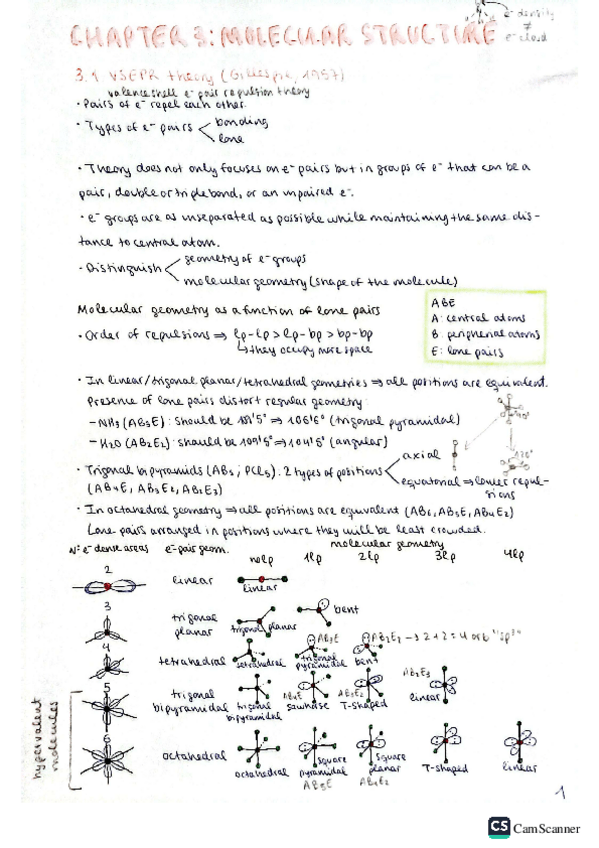 e⁻ density
≠
e⁻ cloud
CHAPTER 3: MOLECULAR STRUCTURE
3.1 VSEPR theory (Gillespie, 1957)
valence shell e⁻ pair repulsion theory
· Pairs of e⁻ repel each other.
· Types of e⁻ pairs < bonding
lone
· Theory does not only focuses on e⁻ pairs but in groups of e⁻ that can be a
pair, double or triple bond, or an unpaired e⁻.
· e⁻ groups are as unseparated as possible while maintaining the same dis-
tance to central atom.
· Distinguish < geometry of e⁻ groups
molecular geometry (shape of the molecule)
Molecular geometry as a function of lone pairs
· Order of repulsions ⇒ lp-lp > lp-bp > bp-bp
↳ they occupy more space
ABE
A: central atoms
B: peripheral atoms
E: lone pairs
· In linear/trigonal planar/tetrahedral geometries ⇒ all positions are equivalent.
Presence of lone pairs distort regular geometry:
- NH3 (AB3E): should be 109'5° ⇒ 106'6° (trigonal pyramidal)
- H2O (AB2E2): should be 109'5° ⇒ 104'5° (angular)
90°
120°
· Trigonal bipyramids (AB5; PCl5): 2 types of positions < axial
equatorial ⇒ lower repul-
sions
(AB4E, AB3E2, AB2E3)
· In octahedral geometry ⇒ all positions are equivalent (AB6, AB5E, AB4E2)
Lone pairs arranged in positions where they will be least crowded.
Nº e⁻ dense areas e⁻ pair geom. molecular geometry
no lp 1lp 2lp 3lp 4lp
2 linear linear
3 trigonal planar trigonal planar bent
4 tetrahedral tetrahedral AB3E trigonal pyramidal AB2E2 → 2+2=4 orb "sp³" bent
5 trigonal bipyramidal trigonal bipyramidal AB4E sawhorse AB3E2 T-shaped AB2E3 linear
6 octahedral octahedral square pyramidal AB5E square planar AB4E2 T-shaped linear
hypervalent
molecules
1
CS CamScanner